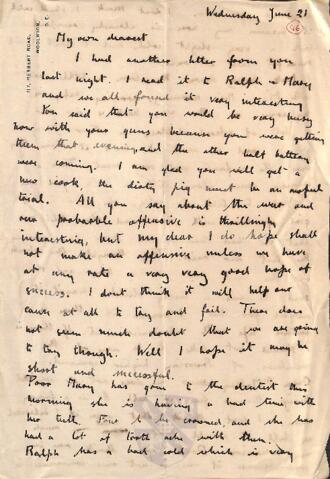 Wednesday June 21
46
117, HERBERT ROAD,
WOOLWICH,
S.E.
My own dearest
I had another letter from you
last night. I read it to Ralph & Mary
and we all found it very interesting
You said that you would be very busy
now with your guns because you were getting
them that evening and the other half battery
were coming. I am glad you will get a
new cook, the dirty pig must be an awful
trial. All you say about the war and
our probable offensive is thrillingly
interesting, but my dear I do hope shall
not make an offensive unless we have
at any rate a very very good hope of
success. I dont think it will help our
cause at all to try and fail. There does
not seem much doubt that we are going
to try though. Well I hope it may be
short and successful.
Poor Mary has gone to the dentist this
morning she is having a bad time with
her teeth. Four to be crowned, and she has
had a lot of tooth ache with them.
Ralph has a bad cold which is very